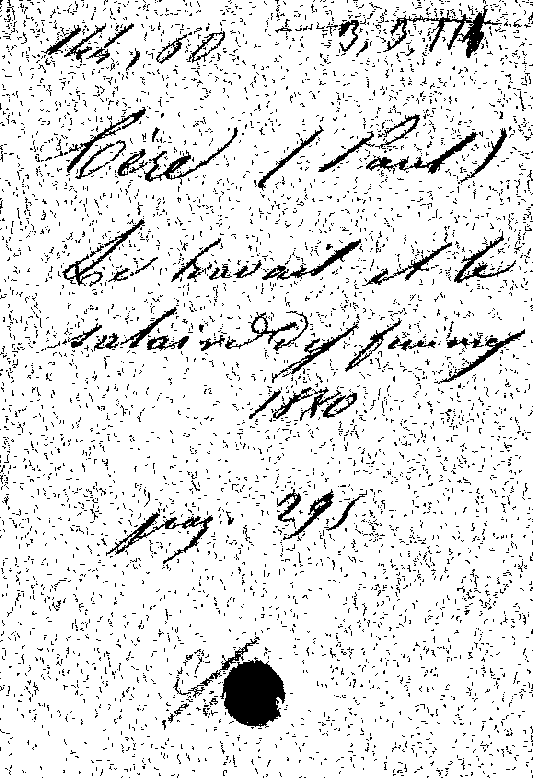 3, 3, 114
Cère (Paul)
Le travail et le
salaire des femmes
1880
pag. 295